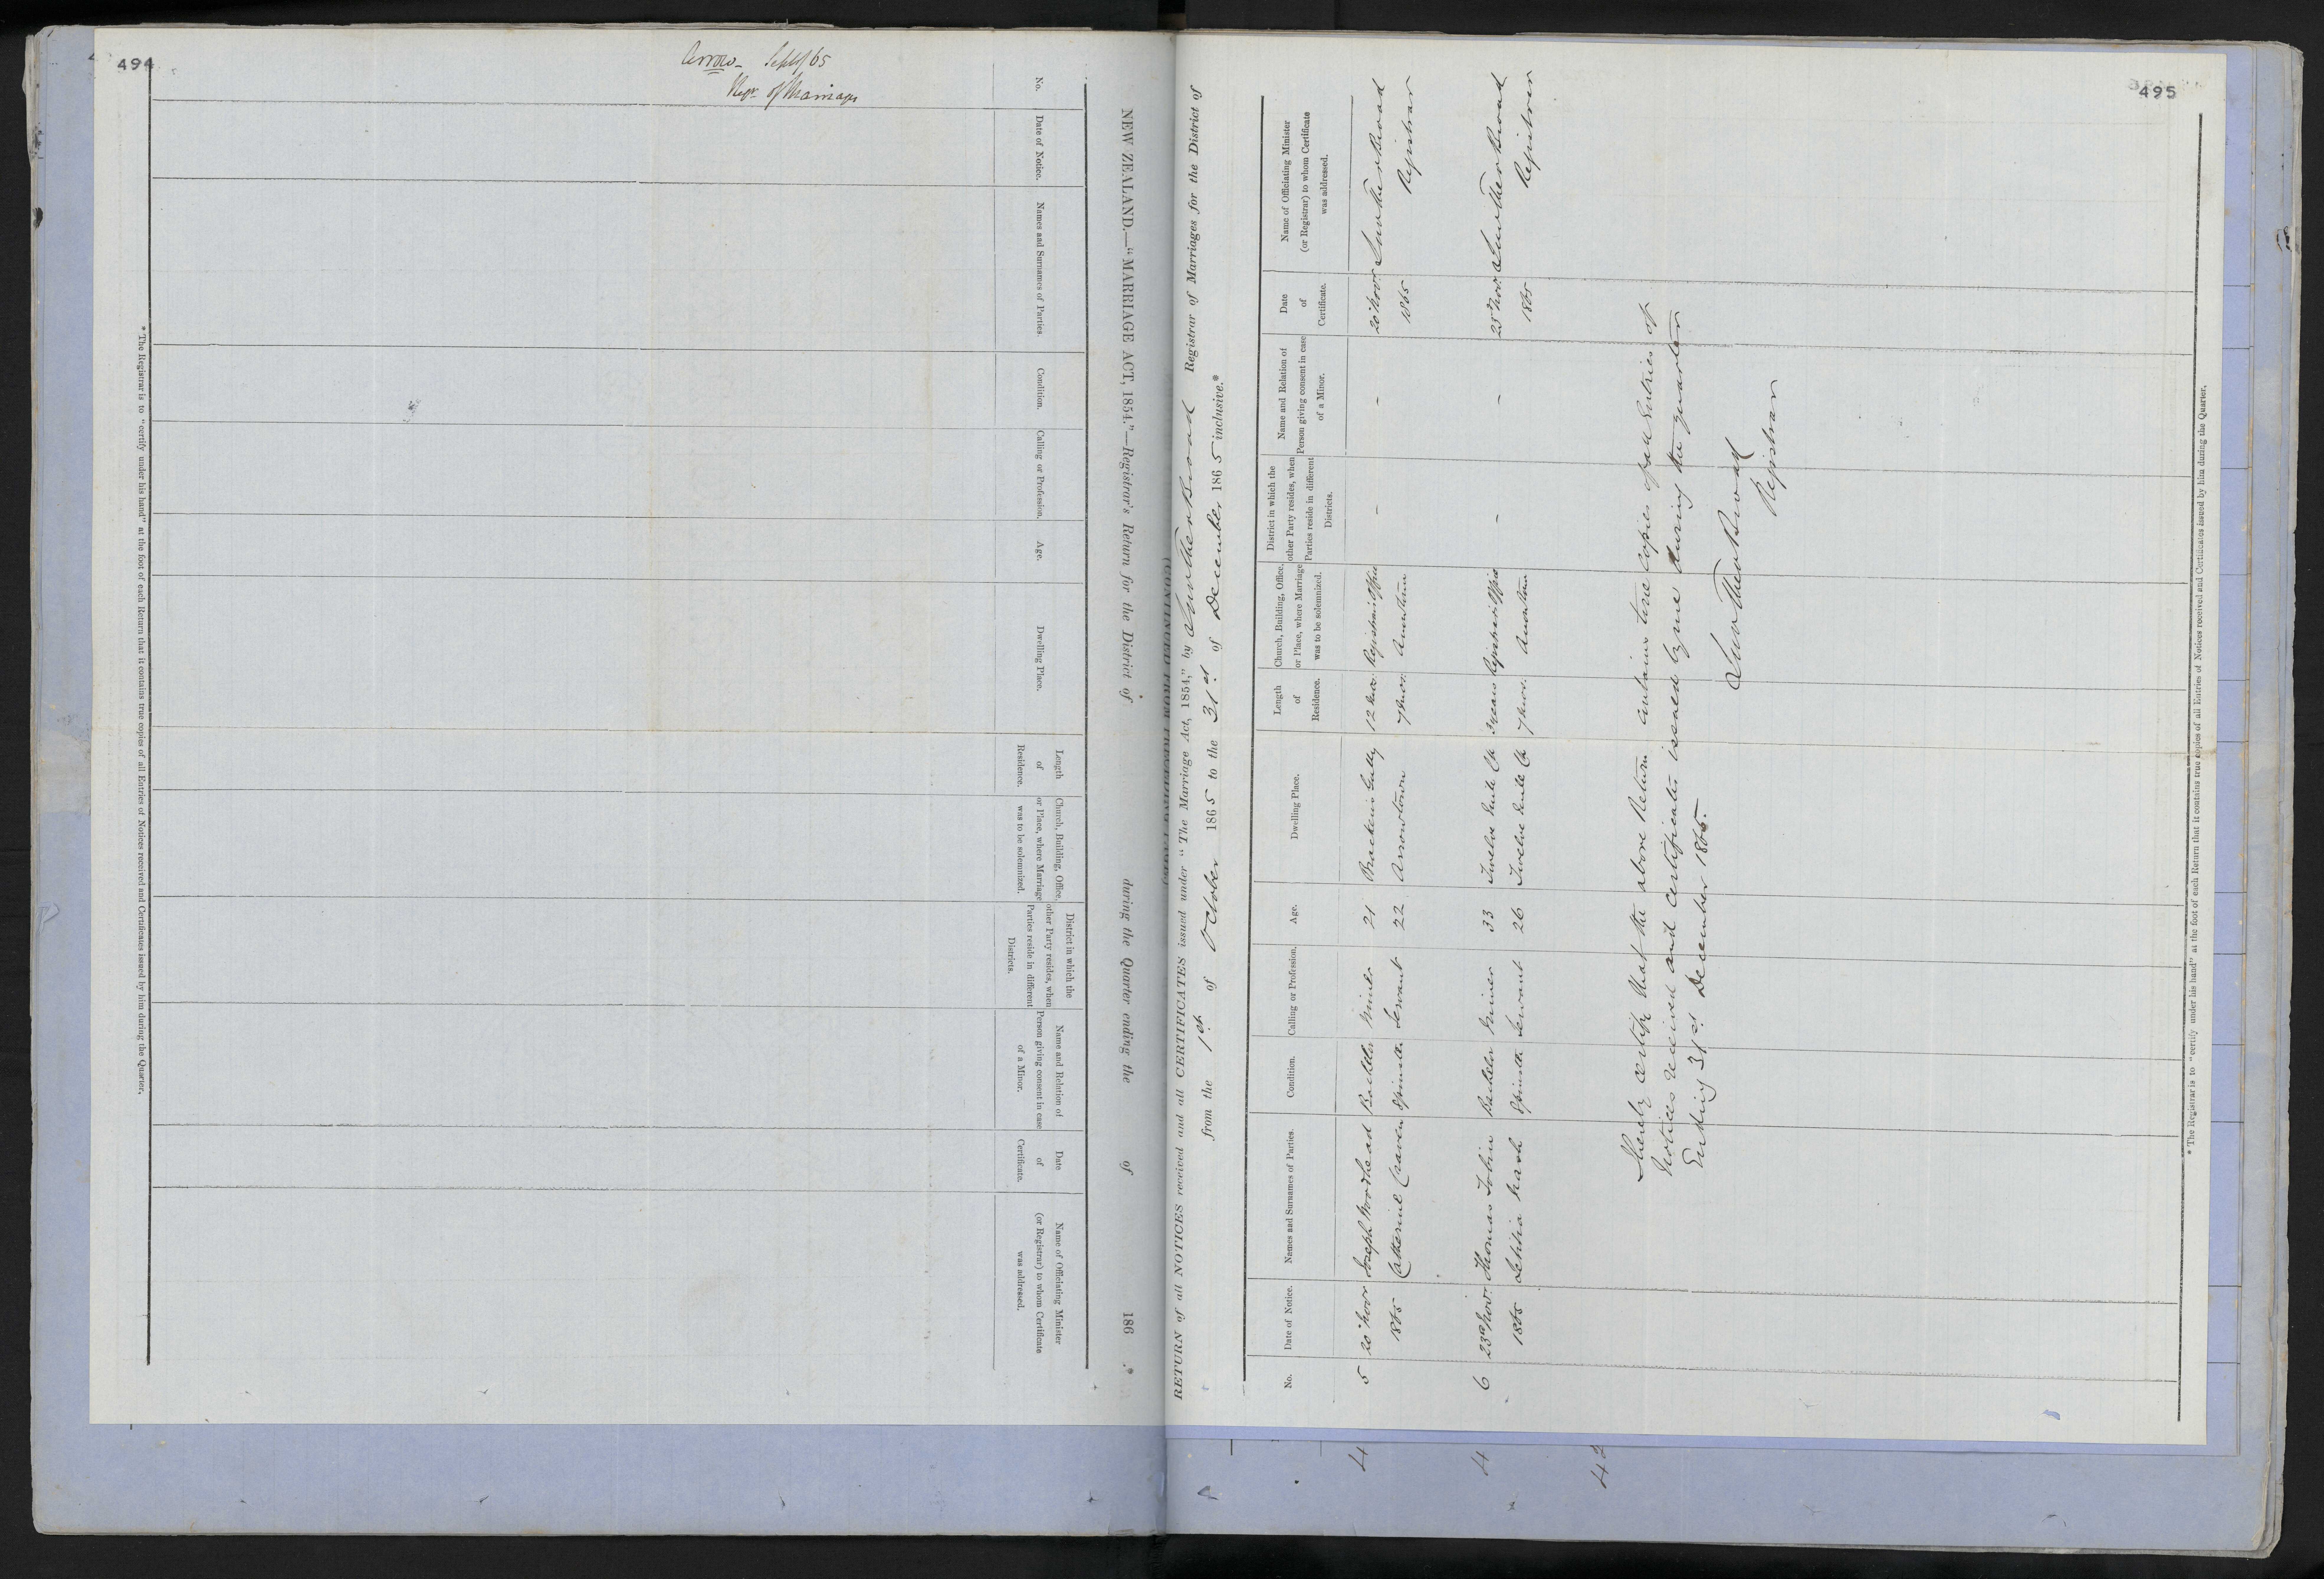 494
Arrow - Sept/65
Regr of Marriages
NEW ZEALAND.—"MARRIAGE ACT, 1854."—Registrar's Return for the District of during the Quarter ending the of 186 .*
No.
Date of Notice.
Names and Surnames of Parties.
Condition.
Calling or Profession.
Age.
Dwelling Place.
Length of Residence.
Church, Building, Office, or Place, where Marriage was to be solemnized.
District in which the other Party resides, when Parties reside in different Districts.
Name and Relation of Person giving consent in case of a Minor.
Date of Certificate.
Name of Officiating Minister (or Registrar) to whom Certificate was addressed.
* The Registrar is to "certify under his hand" at the foot of each Return that it contains true copies of all Entries of Notices received and Certificates issued by him during the Quarter.
495
RETURN of all NOTICES received and all CERTIFICATES issued under "The Marriage Act, 1854," by Lowther Broad Registrar of Marriages for the District of
from the 1st of October 1865 to the 31st of December 1865 inclusive.*
No.
Date of Notice.
Names and Surnames of Parties.
Condition.
Calling or Profession.
Age.
Dwelling Place.
Length of Residence.
Church, Building, Office, or Place, where Marriage was to be solemnized.
District in which the other Party resides, when Parties reside in different Districts.
Name and Relation of Person giving consent in case of a Minor.
Date of Certificate.
Name of Officiating Minister (or Registrar) to whom Certificate was addressed.
5 20 Novr Joseph Woodhead Bachelor Miner 21 Brackens Gully 12 Registrars Office - - 20 Novr Lowther Broad
1865 Catherine Craven Spinster Servant 22 Arrowtown 7 Arrowtown 1865 Registrar
6 23d Novr Thomas Tobin Bachelor Miner 33 Twelve Mile Ck 3 years Registrars Office - - 25 Novr Lowther Broad
1865 Letitia Spinster Servant 26 Twelve Mile Ck 7 Arrowtown 1865 Registrar
I hereby certify that the above Return contains true copies of all Entries of
Notices received and certificates issued by me during the quarter
Ending 31st December 1865.
Lowther Broad
Registrar
* The Registrar is to "certify under his hand" at the foot of each Return that it contains true copies of all Entries of Notices received and Certificates issued by him during the Quarter.
4
4
42